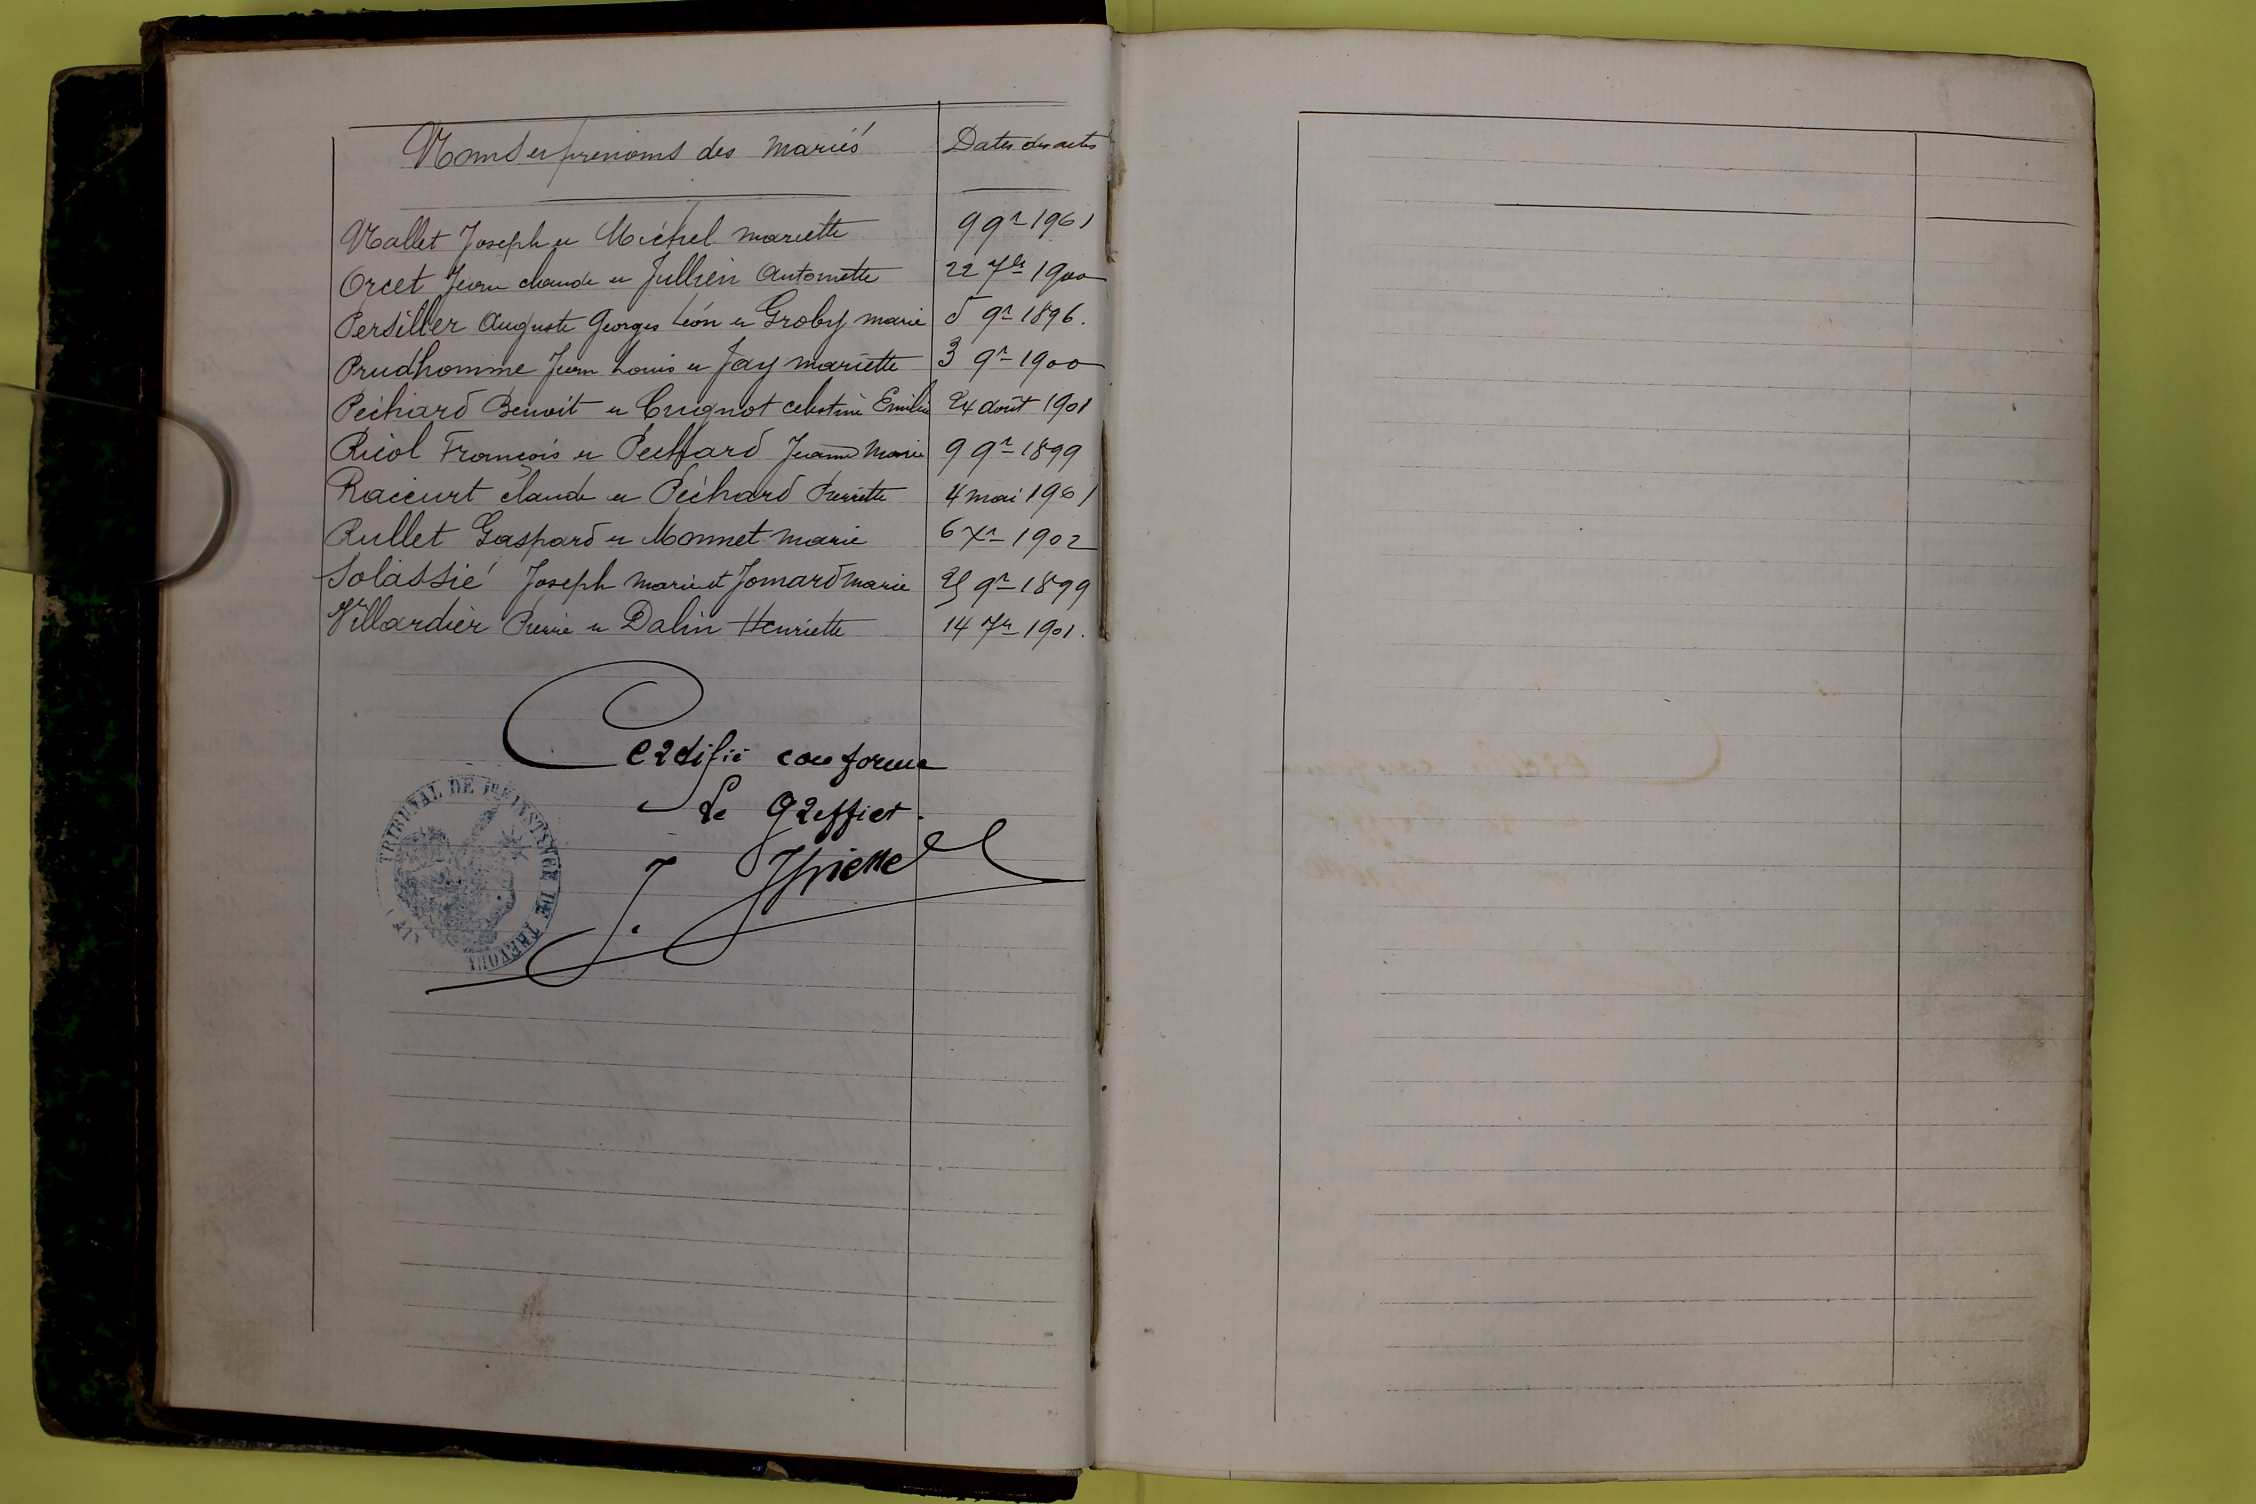 Noms et prénoms des mariés Dates des actes
Mallet Joseph et Michel mariette 9 9r 1901
Orcet Jean claude et Jullien Antoinette 22 7br 1900
Persiller Auguste Georges Léon et Groby marie 5 9r 1896.
Prudhomme Jean Louis et Jay mariette 3 9r 1900
Péchard Benoit et Cugnot celestine Emilie 24 août 1901
Ricol François et Péchard Jeanne marie 9 9r 1899
Raccurt claude et Péchard Pierrette 4 mai 1901
Rullet Gaspard et Monnet marie 6 Xr 1902
Solassié Joseph marie et Jomard marie 25 9r 1899
Villardier Pierre et Dalin Henriette 14 7br 1901.
Certifié conforme
Le Greffier.
J.
TRIBUNAL DE 1RE INSTANCE DE TREVOUX